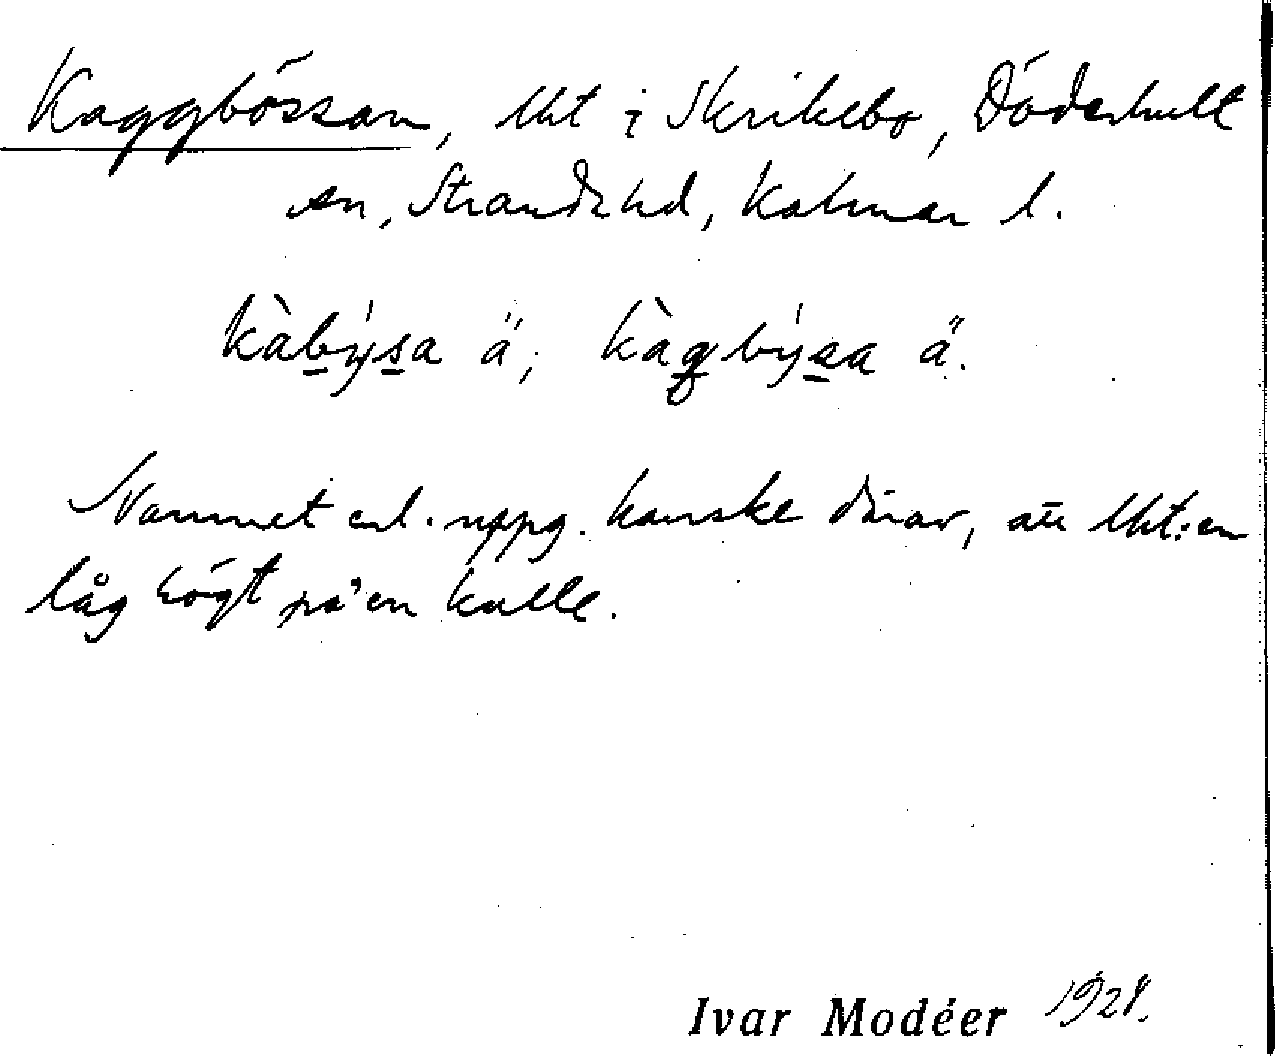 Kaggbössan, lht i Skrikebo, Döderhult
sn, Stranda hd, Kalmar l.
kàby̍sa ä; kàgby̍sa ä.
Namnet enl. uppg. kanske därav, att lht:en
låg högt på en kulle.
Ivar Modéer